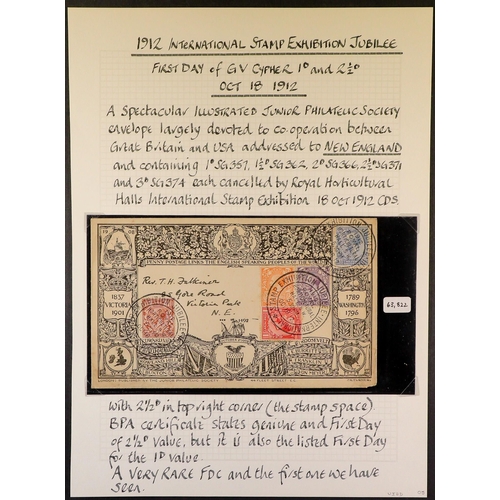 1912 INTERNATIONAL STAMP EXHIBITION JUBILEE
FIRST DAY of GV CYPHER 1D and 2½D
OCT 18 1912
A SPECTACULAR ILLUSTRATED JUNIOR PHILATELIC SOCIETY
envelope largely devoted to co-operation between
Great Britain and USA addressed to NEW ENGLAND
and containing 1D SG357, 1½D SG362, 2D SG366, 2½D SG371
and 3D SG374 each cancelled by Royal Horticultural
Halls International Stamp Exhibition 18 OCT 1912 CDS.
PENNY POSTAGE LINKS THE ENGLISH SPEAKING PEOPLES OF THE
Rev. T. H. Falkiner
Gore Road
Victoria Park
N.E.
1837
VICTORIA
1901
1789
WASHINGTON
1796
63,822
with 2½D in top right corner (the stamp space).
BPA certificate states genuine and First Day
of 2½D value, but it is also the listed First Day
for the 1D value.
A VERY RARE FDC and the first one we have
seen.